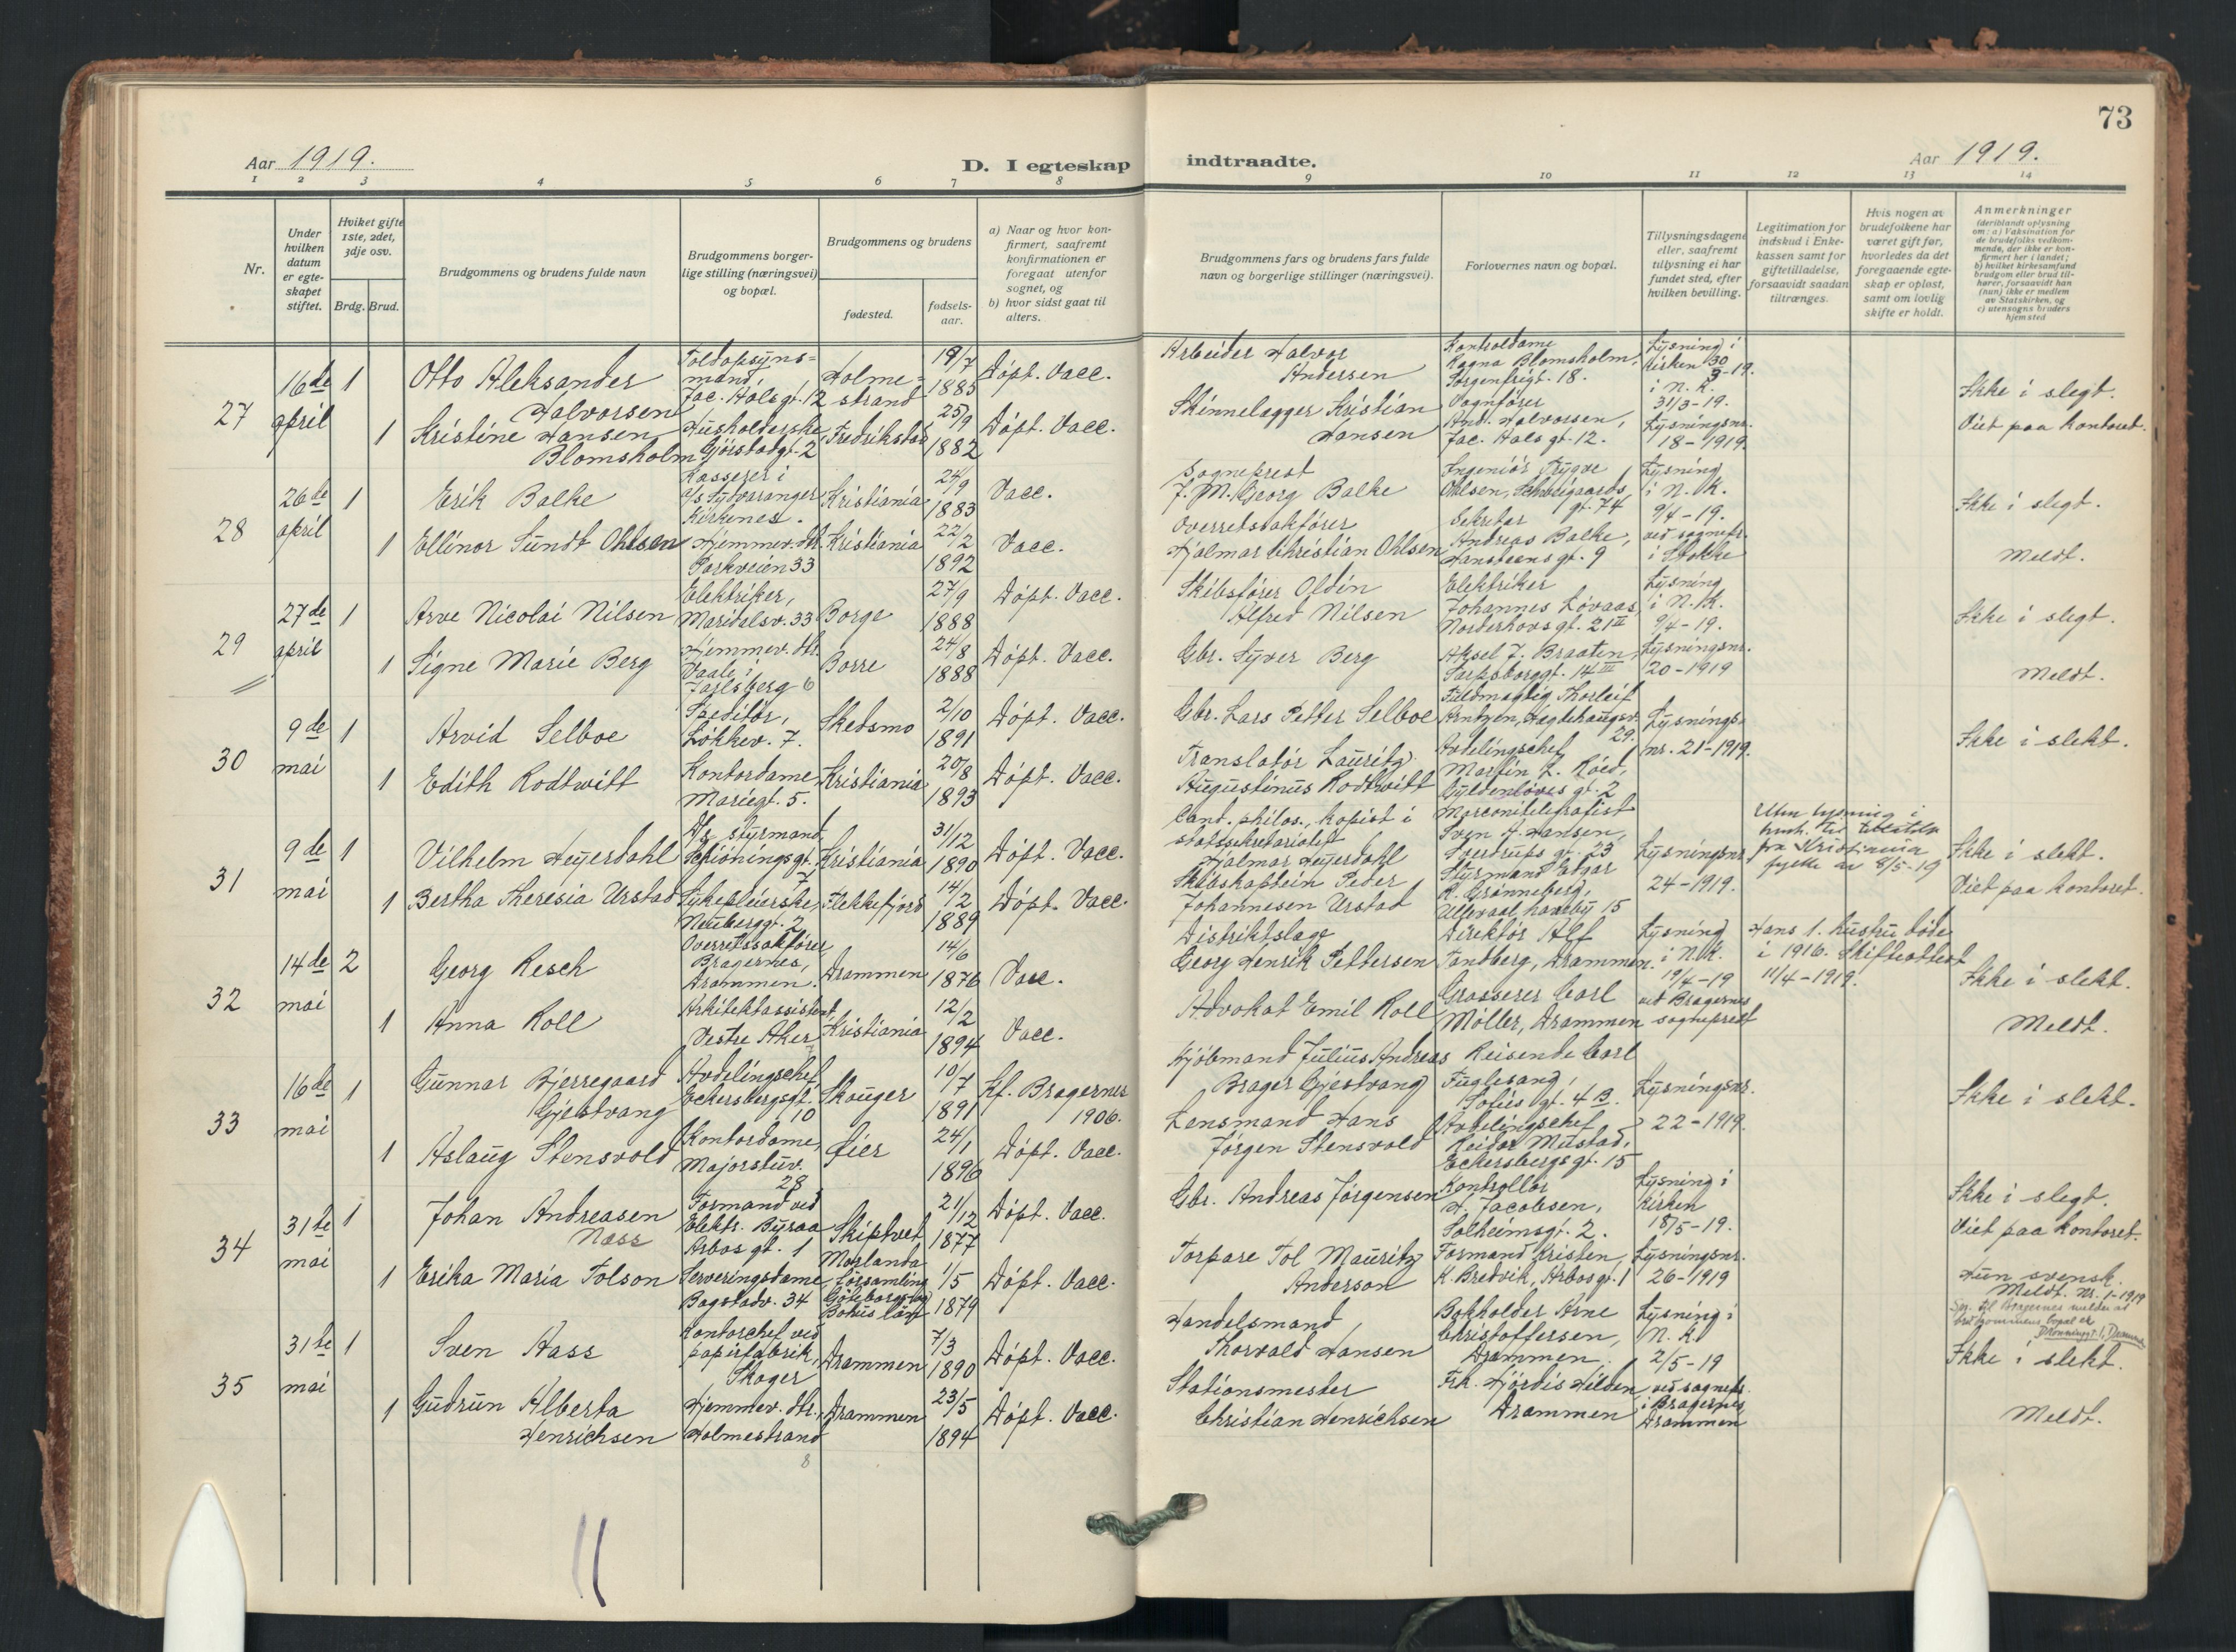 73
Aar 1919.
D. I egteskap indtraadte.
Aar 1919.
1 2 3 4 5 6 7 8 9 10 11 12 13 14
Nr.
Under hvilken datum er egteskapet stiftet.
Hviket gifte 1ste, 2det, 3dje osv.
Brdg. Brud.
Brudgommens og brudens fulde navn
Brudgommens borgerlige stilling (næringsvei) og bopæl.
Brudgommens og brudens
fødested.
fødselsaar.
a) Naar og hvor konfirmert, saafremt konfirmationen er foregaat utenfor sognet, og
b) hvor sidst gaat til alters.
Brudgommens fars og brudens fars fulde navn og borgerlige stillinger (næringsvei).
Forlovernes navn og bopæl.
Tillysningsdagene eller, saafremt tillysning ei har fundet sted, efter hvilken bevilling.
Legitimation for indskud i Enkekassen samt for giftetilladelse, forsaavidt saadan tiltrænges.
Hvis nogen av brudefolkene har været gift før, hvorledes da det foregaaende egteskap er opløst, samt om lovlig skifte er holdt.
Anmerkninger
(deriblandt oplysning om: a) Vaksination for de brudefolks vedkommende, der ikke er konfirmert her i landet; b) hvilket kirkesamfund brudgom eller brud tilhører, forsaavidt han (hun) ikke er medlem av Statskirken, og c) utensogns bruders hjemsted
27
16de april
1
Otto Aleksander Halvorsen
Toldopsynsmand, Jac. Halsgt. 12
Holmestrand
19/7 1885
Døpt. Vacc.
Arbeider Halvor Andersen
Kontordame Ragna Blomsholm, Sorgenfrigt. 18.
Lysning i kirken 30/3-19. i N. K. 31/3-19.
Ikke i slegt.
1
Kristine Hansen Blomsholm
Husholderske, Gjørstadgt. 2
Fredrikstad
25/9 1882
Døpt. Vacc.
Skinnelægger Kristian Hansen
Vognfører And. Halvorsen, Jac. Aals gt. 12.
Lysningsnr. 18-1919.
Viet paa kontoret.
28
26de april
1
Erik Balke
Kasserer i A/S Sydvaranger Kirkenes.
Kristiania
24/9 1883
Vacc.
Sogneprest J. M. Georg Balke
Ingeniør Trygve Ohlsen, Schweigaards gt. 74
Lysning i N. K. 9/4-19.
Ikke i slegt.
1
Ellinor Sundt Ohlsen
Hjemmev. dtr. Parkveien 33
Kristiania
22/2 1892
Vacc.
Overretssakfører Hjalmar Christian Ohlsen
Sekretær Andreas Balke, Hansteens gt. 9
ved sognepr. i Stokke
Meldt.
29
27de april
1
Arve Nicolai Nilsen
Elektriker, Maridalsv. 33
Borge
27/9 1888
Døpt. Vacc.
Skibsfører Oldin Alfred Nilsen
Elektriker Johannes Løvaas, Norderhovs gt. 21 II
Lysning i N. K. 9/4-19.
Ikke i slegt.
1
Signe Marie Berg
Hjemmev. dtr. Vaale i Jarlsberg 6
Borre
24/8 1888
Døpt. Vacc.
Gbr. Syver Berg
Aksel J. Braaten, Sarpsborggt. 14 III
Lysningsnr. 20-1919
Meldt.
30
9de mai
1
Arvid Selboe
Speditør, Løkkev. 7.
Skedsmo
2/10 1891
Døpt. Vacc.
Gbr. Lars Petter Selboe
Fuldmægtig Thorleif Arntzen, Hegdehaugsv. 29.
Lysningsnr. 21-1919.
Ikke i slekt.
1
Edith Rodtwitt
Kontordame Mariegt. 5.
Kristiania
20/8 1893
Døpt. Vacc.
Translatør Lauritz Augustinus Rodtwitt
Avdelingschef Martin L. Røed, Gyldenløves gt. 2
31
9de mai
1
Vilhelm Heyerdahl
styrmand, Schiønningsgt. 7
Kristiania
31/12 1890
Døpt. Vacc.
Cand. philos., kopist i statssekretariatet Hjalmar Heyerdahl
Marconitelegrafist Sven A. Hansen, Sverdrups gt. 23
Lysningsnr. 24-1919.
Uten lysning i henh. til tilladelse fra Kristiania fylke av 8/5-19
Ikke i slekt.
1
Bertha Theresia Urstad
Sykepleierske, Neuberggt. 2
Flekkefjord
14/2 1889
Døpt. Vacc.
Skibskaptein Peder Johannesen Urstad
Styrmand Edgar R. Grønneberg, Ullevaal haveby 15
Viet paa kontoret.
32
14de mai
2
Georg Resch
Overretssakfører, Bragernes, Drammen.
Drammen
14/6 1876
Vacc.
Distriktslæge Georg Henrik Pettersen
Direktør Alf Tandberg, Drammen.
Lysning i N. K. 19/4-19
Hans 1. hustru døde i 1916. Skifteattest 11/4-1919.
Ikke i slekt.
1
Anna Roll
Arkitektassistent, Vestre Aker
Kristiania
12/2 1894
Vacc.
Advokat Emil Roll
Grosserer Carl Møller, Drammen
ved Bragernes sogneprest
Meldt.
33
16de mai
1
Gunnar Bjerregaard Gjestvang
Avdelingschef, Eckersbergsgt. 10
Skouger
10/7 1891
Kf. Bragernes 1906.
Kjøbmand Julius Andreas Brager Gjestvang
Reisende Carl Fuglesang, Sofies gt. 4 B.
Lysningsnr. 22-1919.
Ikke i slekt.
1
Aslaug Stensvold
Kontordame, Majorstuv. 28
Øier
24/1 1896
Døpt. Vacc.
Lensmand Hans Jørgen Stensvold
Avdelingschef Reidar Mustad, Eckersbergsgt. 15
34
31te mai
1
Johan Andreasen Næss
Formand ved Elektr. Byraa Arbos gt. 1
Skiptvet
21/12 1877
Døpt. Vacc.
Gbr. Andreas Jørgensen
Kontrollør H. Jacobsen, Solheimsgt. 2.
Lysning i kirken 18/5-19.
Ikke i slegt.
Viet paa kontoret.
1
Erika Maria Tolson
Serveringsdame Bogstadv. 34
Morlanda församling Göteborgs og Bohus län
1/5 1879
Døpt. Vacc.
Torpare Tol Mauritz Anderson
Formand Kristen K. Bredvik, Arbos gt. 1
Lysningsnr. 26-1919
Hun svensk.
Meldt. nr. 1-1919
35
31te mai
1
Sven Aass
Kontorchef ved papirfabrik, Skoger
Drammen
7/3 1890
Døpt. Vacc.
Handelsmand Thorvald Hansen
Bokholder Arne Christoffersen, Drammen.
Lysning i N. K. 2/5-19
Spr. til Bragernes melder at brudgommens bopæl er
Ikke i slekt.
1
Gudrun Alberta Henrichsen
Hjemmev. dtr., Holmestrand
8
Drammen
23/5 1894
Døpt. Vacc.
Stationsmester Christian Henrichsen
Frk. Hjørdis Hilden, Drammen
ved sognepr. i Bragernes, Drammen
Meldt.